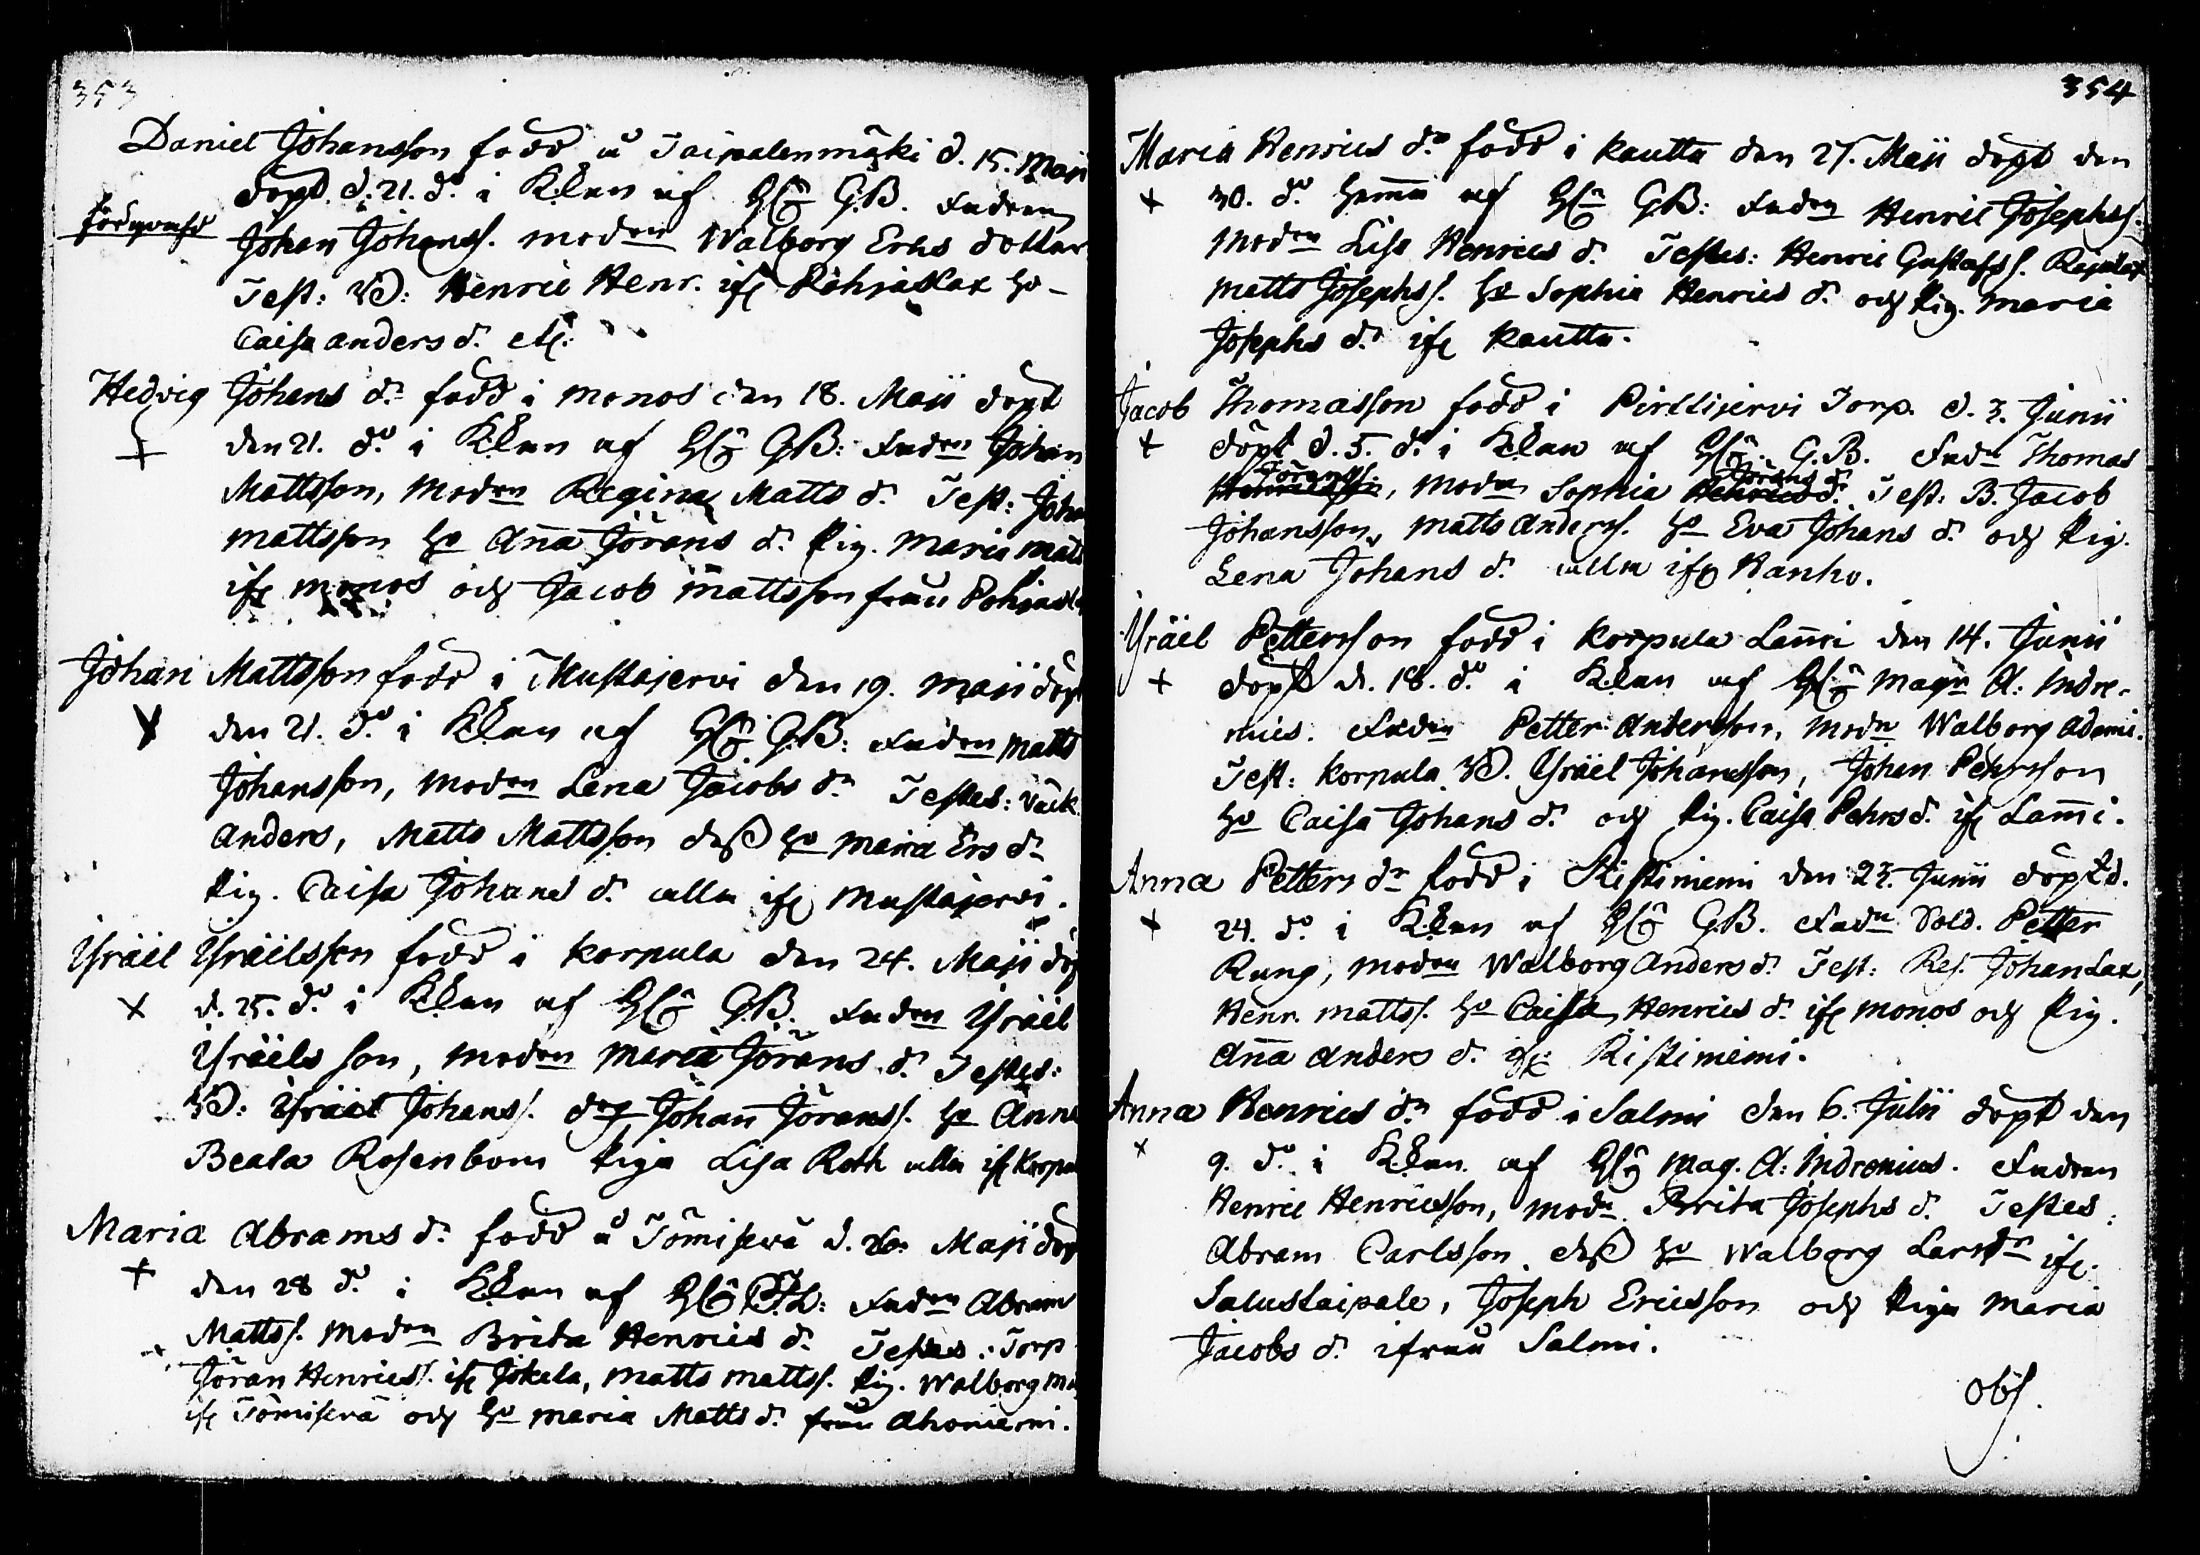 353
Daniel Johansson född å Taipalenmäki d. 15. Maji
döpt d. 21. do i Kkan af GB. Fadren
Johan Johanss. modren Walborg Ers dotter
Test: Henric Henr. ifr Pohjaslax
Caisa Anders dr etc:
Hedvig Johans dr född i monos den 18. Maji döpt
+ den 21. do i Kkan af GB: Fadren Johan
Mattsson, modren Regina Matts dr Test: Johan
Mattsson hu Anna Jörans dr Pig. Maria Matts
ifr monos och Jacob Mattsson från
Johan Mattsson född i Mustajervi den 19. Maji döpt
den 21. do i Kkan af GB: Fadren Matts
Johansson, modren Lena Jacobs dr Testes:
Anders, Matts Mattsson dess hu Maria Ers dr
Pig. Caisa Johans dr alla ifr Mustajervi.
Israël Israëlsson född i Korpula den 24. Maji döpt
+ d. 25. do i Kkan af GB. Fadren Israël
Israëlsson, modren Maria Jörans dr Testes:
Israël Johanss. Johan Jöranss. hu Anna
Beata Rosenbom Piga Lisa Roth alla ifr Korpula
Maria Abrams dr född å Tömiserä d. 26. Maji döpt
+ den 28 do i Kkan af Fadren Abram
Mattss. modren Brita Henrics dr Testes: Torp
Jöran Henricss. ifr Jokela, Matts Mattss. Pig. Walborg
ifr Tömiserä och hu Maria Matts dr från Ahoniemi.
354
Maria Henrics dr född i Kautta den 27. Maji döpt den
+ 30. do hemma af GB: Fadren Henric Josephss.
modren Lisa Henrics dr Testes: Henric Gustafss.
Matts Josephss. hu Sophia Henrics dr och Pig. Maria
Josephs dr ifr Kautta.
Jacob Thomasson född i Pirttijervi Torp. d. 3. Junii
+ döpt d. 5. do i Kkan af G.B. Fadn Thomas
Jöranss., modn Sophia Jörans dr Test: B. Jacob
Johansson, Matts Anderss. hu Eva Johans dr och Pig.
Lena Johans dr alla ifr Hanho.
Israël Pettersson född i Korpula Lammi den 14. Junii
+ döpt d. 18. do i Kkan af Magn A: Indre-
nius. Fadn Petter Andersson, modn Walborg Adami.
Test: Korpula Israël Johansson, Johan Pehrsson
hu Caisa Johans dr och Pig. Caisa Pehrs dr ifr Lammi.
Anna Petters dr född i Ristiniemi den 23. Junii döpt d.
+ 24. do i Kkan af GB. Fadn Sold. Petter
Rung, modren Walborg Anders dr Test: Res. Johan Lax,
Henr. Mattss. hu Caisa Henrics dr ifr monos och Pig.
Anna Anders dr ifr Ristiniemi.
Anna Henrics dr född i Salmi den 6. Julii döpt den
+ 9. do i Kkan af Mag. A: Indrenius. Fadren
Henric Henricsson, modn Brita Josephs dr Testes:
Abram Carlsson, dess hu Walborg Lars dr ifr
Salustaipale, Joseph Ericsson och Piga Maria
Jacobs dr ifrån Salmi.